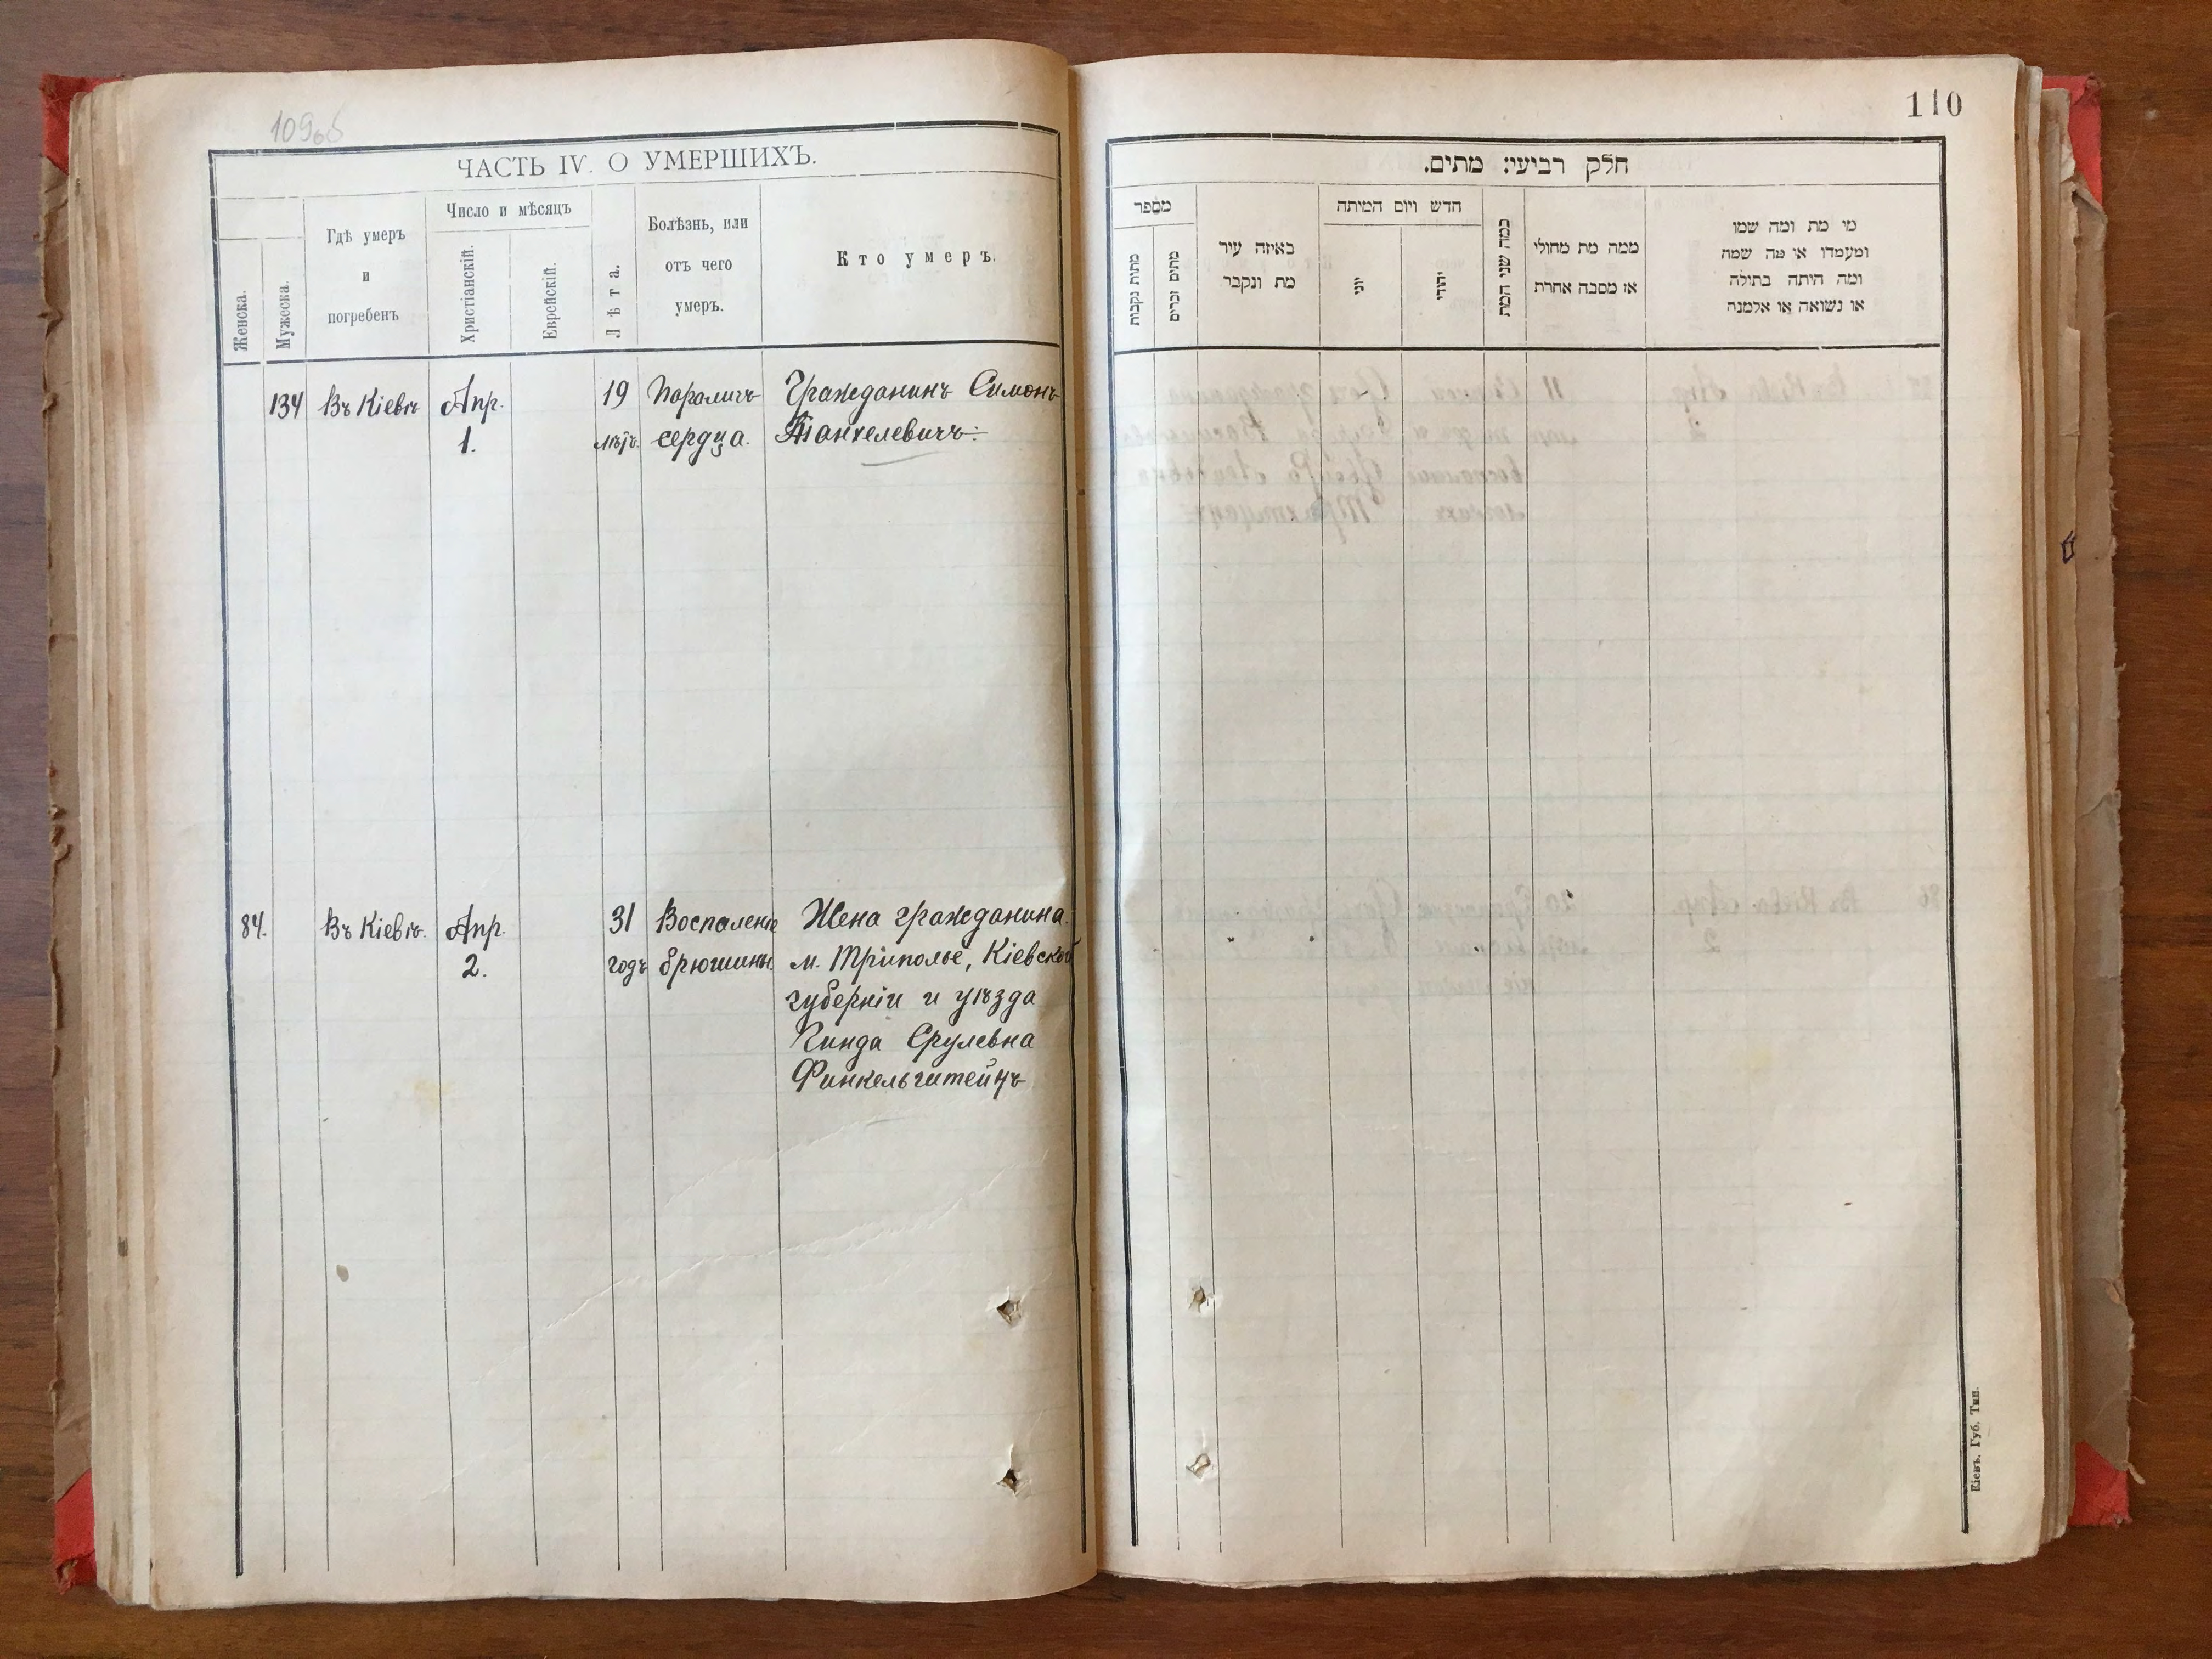 109об
ЧАСТЬ IV. О УМЕРШИХЪ.
Женска.
Мужеска.
Гдѣ умеръ
и
погребенъ
Число и мѣсяцъ
Христіанскій.
Еврейскій.
Лѣта.
Болѣзнь, или
отъ чего
умеръ.
Кто умеръ.
134 Въ Кіевѣ Апр. 19 Параличъ Гражданинъ Симонъ
1. лѣтъ. сердца.
84. Въ Кіевѣ. Апр. 31 Воспаленіе Жена гражданина
2. годъ брюшины м. Триполье, Кіевской
губерніи и уѣзда
Гинда Срулевна
Финкельштейнъ
110
חלק רביעי: מתים.
מספר
מתות נקבות
מתים זכרים
באיזה עיר
מת ונקבר
חדש ויום המיתה
יוני
יהודי
כמה שני המת
ממה מת מחולי
או מסבה אחרת
מי מת ומה שמו
ומעמדו או מה שמה
ומה היתה בתולה
או נשואה או אלמנה
Кіевъ. Губ. Тип.